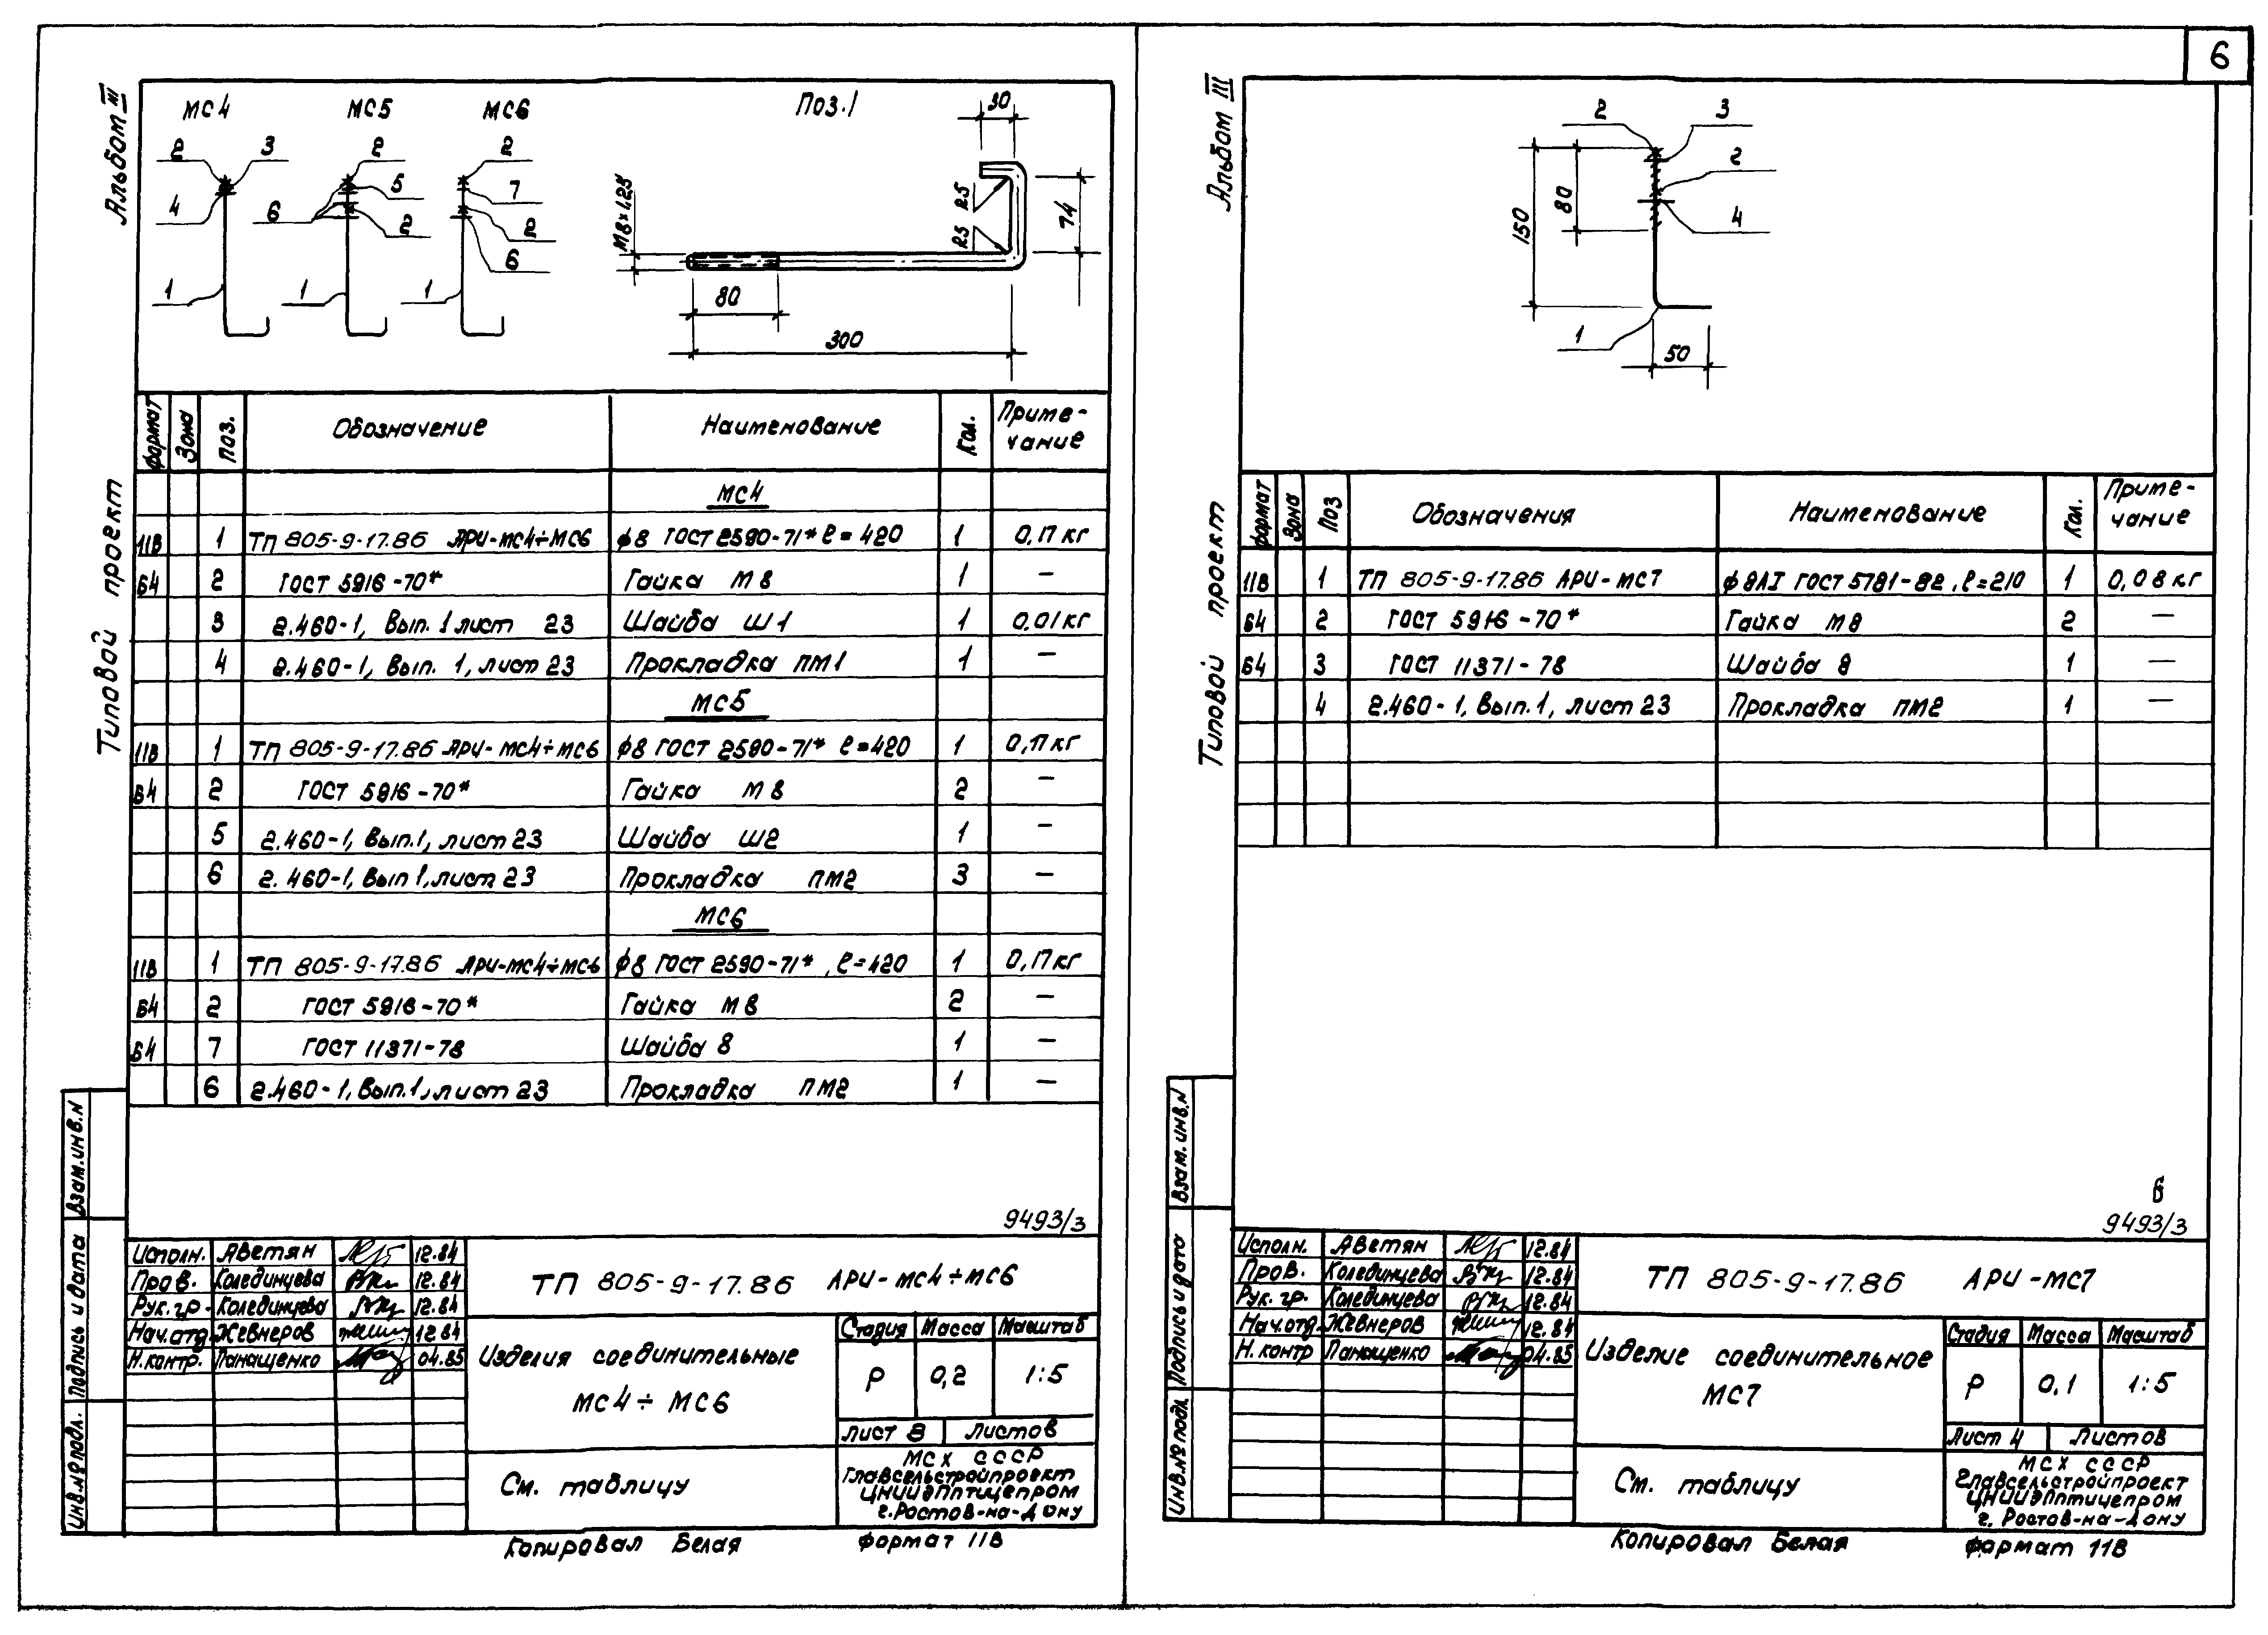 6
Альбом III
Типовой проект
МС4 МС5 МС6 Поз.1
2 3 4 1
2 5 6 2 1
2 7 2 6 1
М8×1.25
80
300
30
74
R5
R5
формат Зона Поз. Обозначение Наименование Кол. Приме-
чание
МС4
11В 1 ТП 805-9-17.86 АРИ-МС4÷МС6 ϕ8 ГОСТ 2590-71* ℓ=420 1 0,17 кг
Б4 2 ГОСТ 5916-70* Гайка М8 1 —
3 2.460-1, Вып. 1 лист 23 Шайба Ш1 1 0,01 кг
4 2.460-1, Вып. 1, лист 23 Прокладка ПМ1 1 —
МС5
11В 1 ТП 805-9-17.86 АРИ-МС4÷МС6 ϕ8 ГОСТ 2590-71* ℓ=420 1 0,17 кг
Б4 2 ГОСТ 5916-70* Гайка М8 2 —
5 2.460-1, Вып.1, лист 23 Шайба Ш2 1 —
6 2.460-1, Вып 1, лист 23 Прокладка ПМ2 3 —
МС6
11В 1 ТП 805-9-17.86 АРИ-МС4÷МС6 ϕ8 ГОСТ 2590-71*, ℓ=420 1 0,17 кг
Б4 2 ГОСТ 5916-70* Гайка М8 2 —
Б4 7 ГОСТ 11371-78 Шайба 8 1 —
6 2.460-1, Вып.1, лист 23 Прокладка ПМ2 1 —
9493/3
Взам.инв.N
Подпись и дата
Инв.№подл.
Исполн. Аветян 12.84
Пров. Колединцева 12.84
Рук. гр. Колединцева 12.84
Нач.отд. Жевнеров 12.84
Н.контр. Панащенко 04.85
ТП 805-9-17.86 АРИ-МС4÷МС6
Изделия соединительные
МС4÷МС6
Стадия Масса Масштаб
Р 0,2 1:5
Лист 8 Листов
См. таблицу
МСХ СССР
Главсельстройпроект
ЦНИИЭПптицепром
г.Ростов-на-Дону
Копировал Белая формат 11В
Альбом III
Типовой проект
2 3 2 4 1
150
80
50
формат Зона Поз Обозначения Наименование Кол. Приме-
чание
11В 1 ТП 805-9-17.86 АРИ-МС7 ϕ8АI ГОСТ 5781-82, ℓ=210 1 0,08 кг
Б4 2 ГОСТ 5916-70* Гайка М8 2 —
Б4 3 ГОСТ 11371-78 Шайба 8 1 —
4 2.460-1, Вып.1, лист 23 Прокладка ПМ2 1 —
6
9493/3
Взам.инв.N
Подпись и дата
Инв.№ подл.
Исполн. Аветян 12.84
Пров. Колединцева 12.84
Рук. гр. Колединцева 12.84
Нач.отд. Жевнеров 12.84
Н.контр Панащенко 04.85
ТП 805-9-17.86 АРИ-МС7
Изделие соединительное
МС7
Стадия Масса Масштаб
Р 0,1 1:5
Лист 4 Листов
См. таблицу
МСХ СССР
Главсельстройпроект
ЦНИИЭПптицепром
г. Ростов-на-Дону
Копировал Белая формат 11В